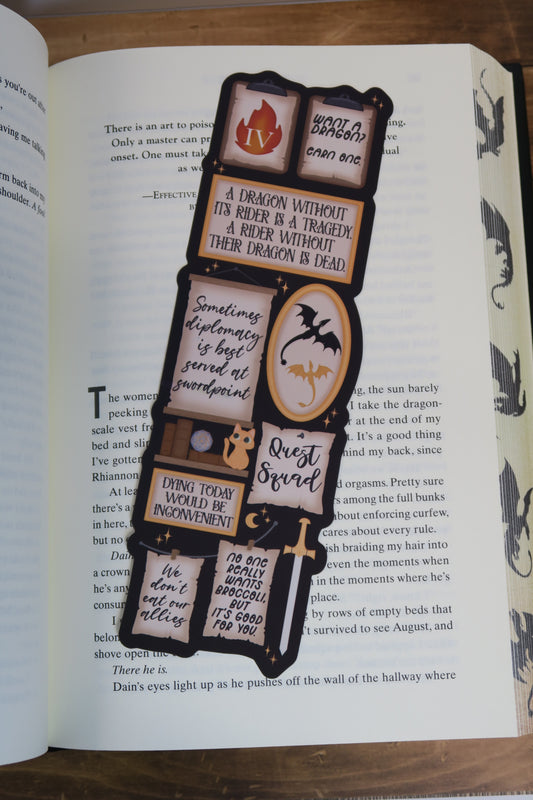 s you're our asset
aving me talking
rm back into my
shoulder. A fool
There is an art to poiso
Only a master can pr
onset. One must tak
as we
—EFFECTIVE
B
ing.
ive
ual
IV
WANT A
DRAGON?
EARN ONE.
A DRAGON WITHOUT
ITS RIDER IS A TRAGEDY.
A RIDER WITHOUT
THEIR DRAGON IS DEAD.
Sometimes
diplomacy
is best
served at
swordpoint
Quest
Squad
DYING TODAY
WOULD BE
INCONVENIENT
We
don't
eat our
allies
NO ONE
REALLY
WANTS
BROCCOLI,
BUT
IT'S GOOD
FOR YOU.
The women
peeking
scale vest fr
bed and slip
I've gotten
Rhiannon
At lea
there's a
in here, t
but no
Dain
a crown
he's any
consum
I
belon
shove open
ng, the sun barely
I take the dragon-
r at the end of my
t. It's a good thing
hind my back, since
d orgasms. Pretty sure
rs among the full bunks
about enforcing curfew,
cares about every rule.
ish braiding my hair into
even the moments when
in the moments where he's
place.
by rows of empty beds that
't survived to see August, and
There he is.
Dain's eyes light up as he pushes off the wall of the hallway where